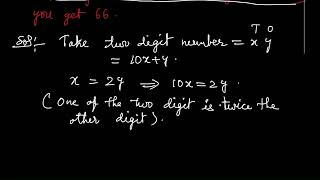 you get 66.
Sol:- Take two digit number = x y
T O
= 10x+y.
x = 2y ⟹ 10x=2y.
(One of the two digit is twice the
other digit).